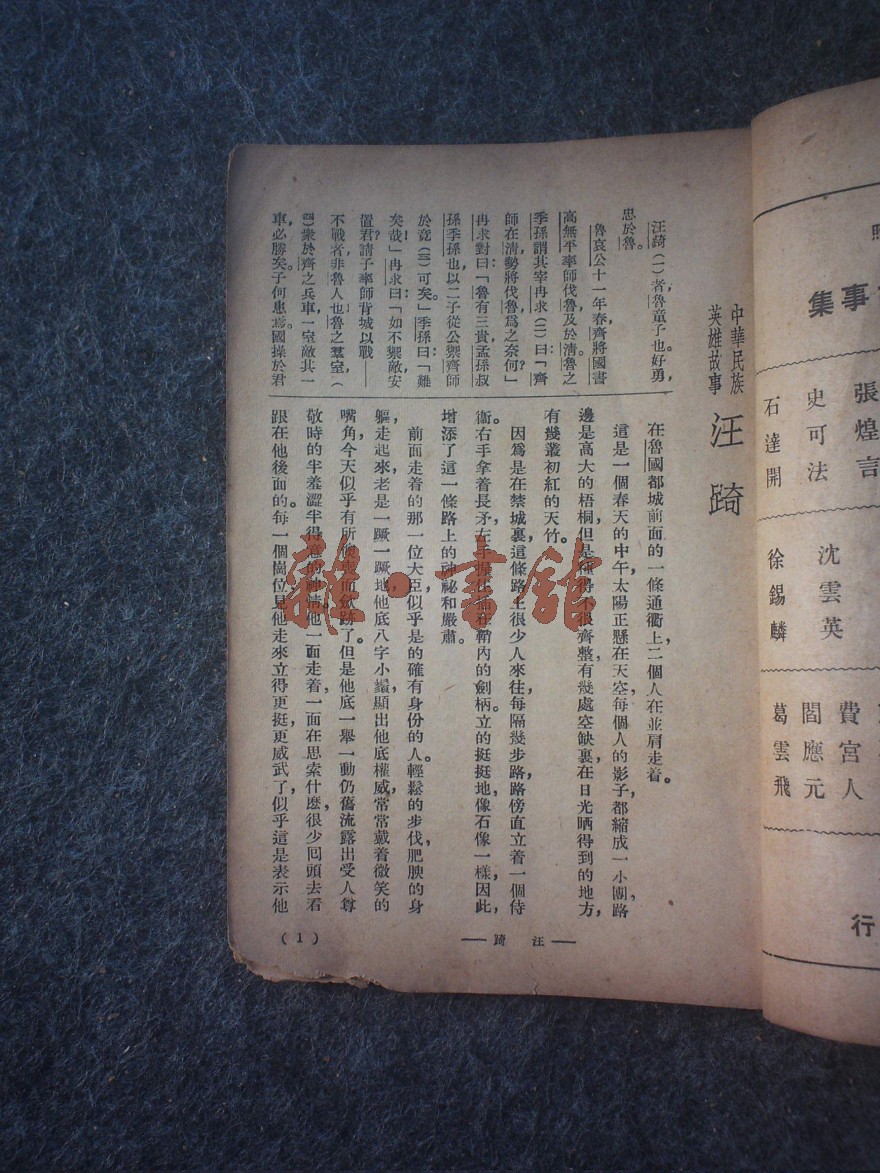 中華民族
英雄故事
汪踦
汪踦(一)者魯童子也。好勇，
思於魯。
魯哀公十一年春，齊將國書
高無平率師伐魯及於清。魯之
季孫謂其宰冉求(二)曰：「齊
師在清勢將伐魯爲之奈何？」
冉求對曰：「魯有三貴孟孫叔
孫季孫也以二子從公禦齊師
於竟(三)可矣」季孫曰：「難
矣哉！」冉求曰：「如不禦敵安
置君？請子率師背城以戰——
不戰者，非魯人也魯之羣室，(
四)衆於齊之兵車，一室敵其一
車，必勝矣。子何患焉。國操於君
在魯國都城前面的一條通衢上，二個人在並肩走着。
這是一個春天的中午，太陽正懸在天空，每個人的影子，都縮成一小團，路
邊是高大的梧桐，但是種得不很齊整，有幾處空缺裏，在日光晒得到的地方，
有幾叢初紅的天竹。
因爲是在禁城裏，這條路上很少人來往，每隔幾步路，路傍直立着一個侍
衞。右手拿着長矛，左手握住插在鞘內的劍柄。立的挺挺地，像石像一樣，因此，
增添了這一條路上的神祕和嚴肅。
前面走着的那一位大臣，似乎是的確有身份的人。輕鬆的步伐，肥腴的身
軀，走起來，老是一蹶一蹶地，他底八字小鬍，顯出他底權威，常常戴着微笑的
嘴角，今天似乎有所 而斂跡了。但是他底一舉一動，仍舊流露出受人尊
敬時的半羞澀半得意的神情。他一面走着，一面在思索什麼，很少回頭去看
跟在他後面的。每一個崗位，見他走來，立得更挺，更威武了，似乎這是表示他
— 汪踦 —
(1)
事集
張煌言
史可法
石達開
沈雲英
徐錫麟
費宮人
閻應元
葛雲飛
行